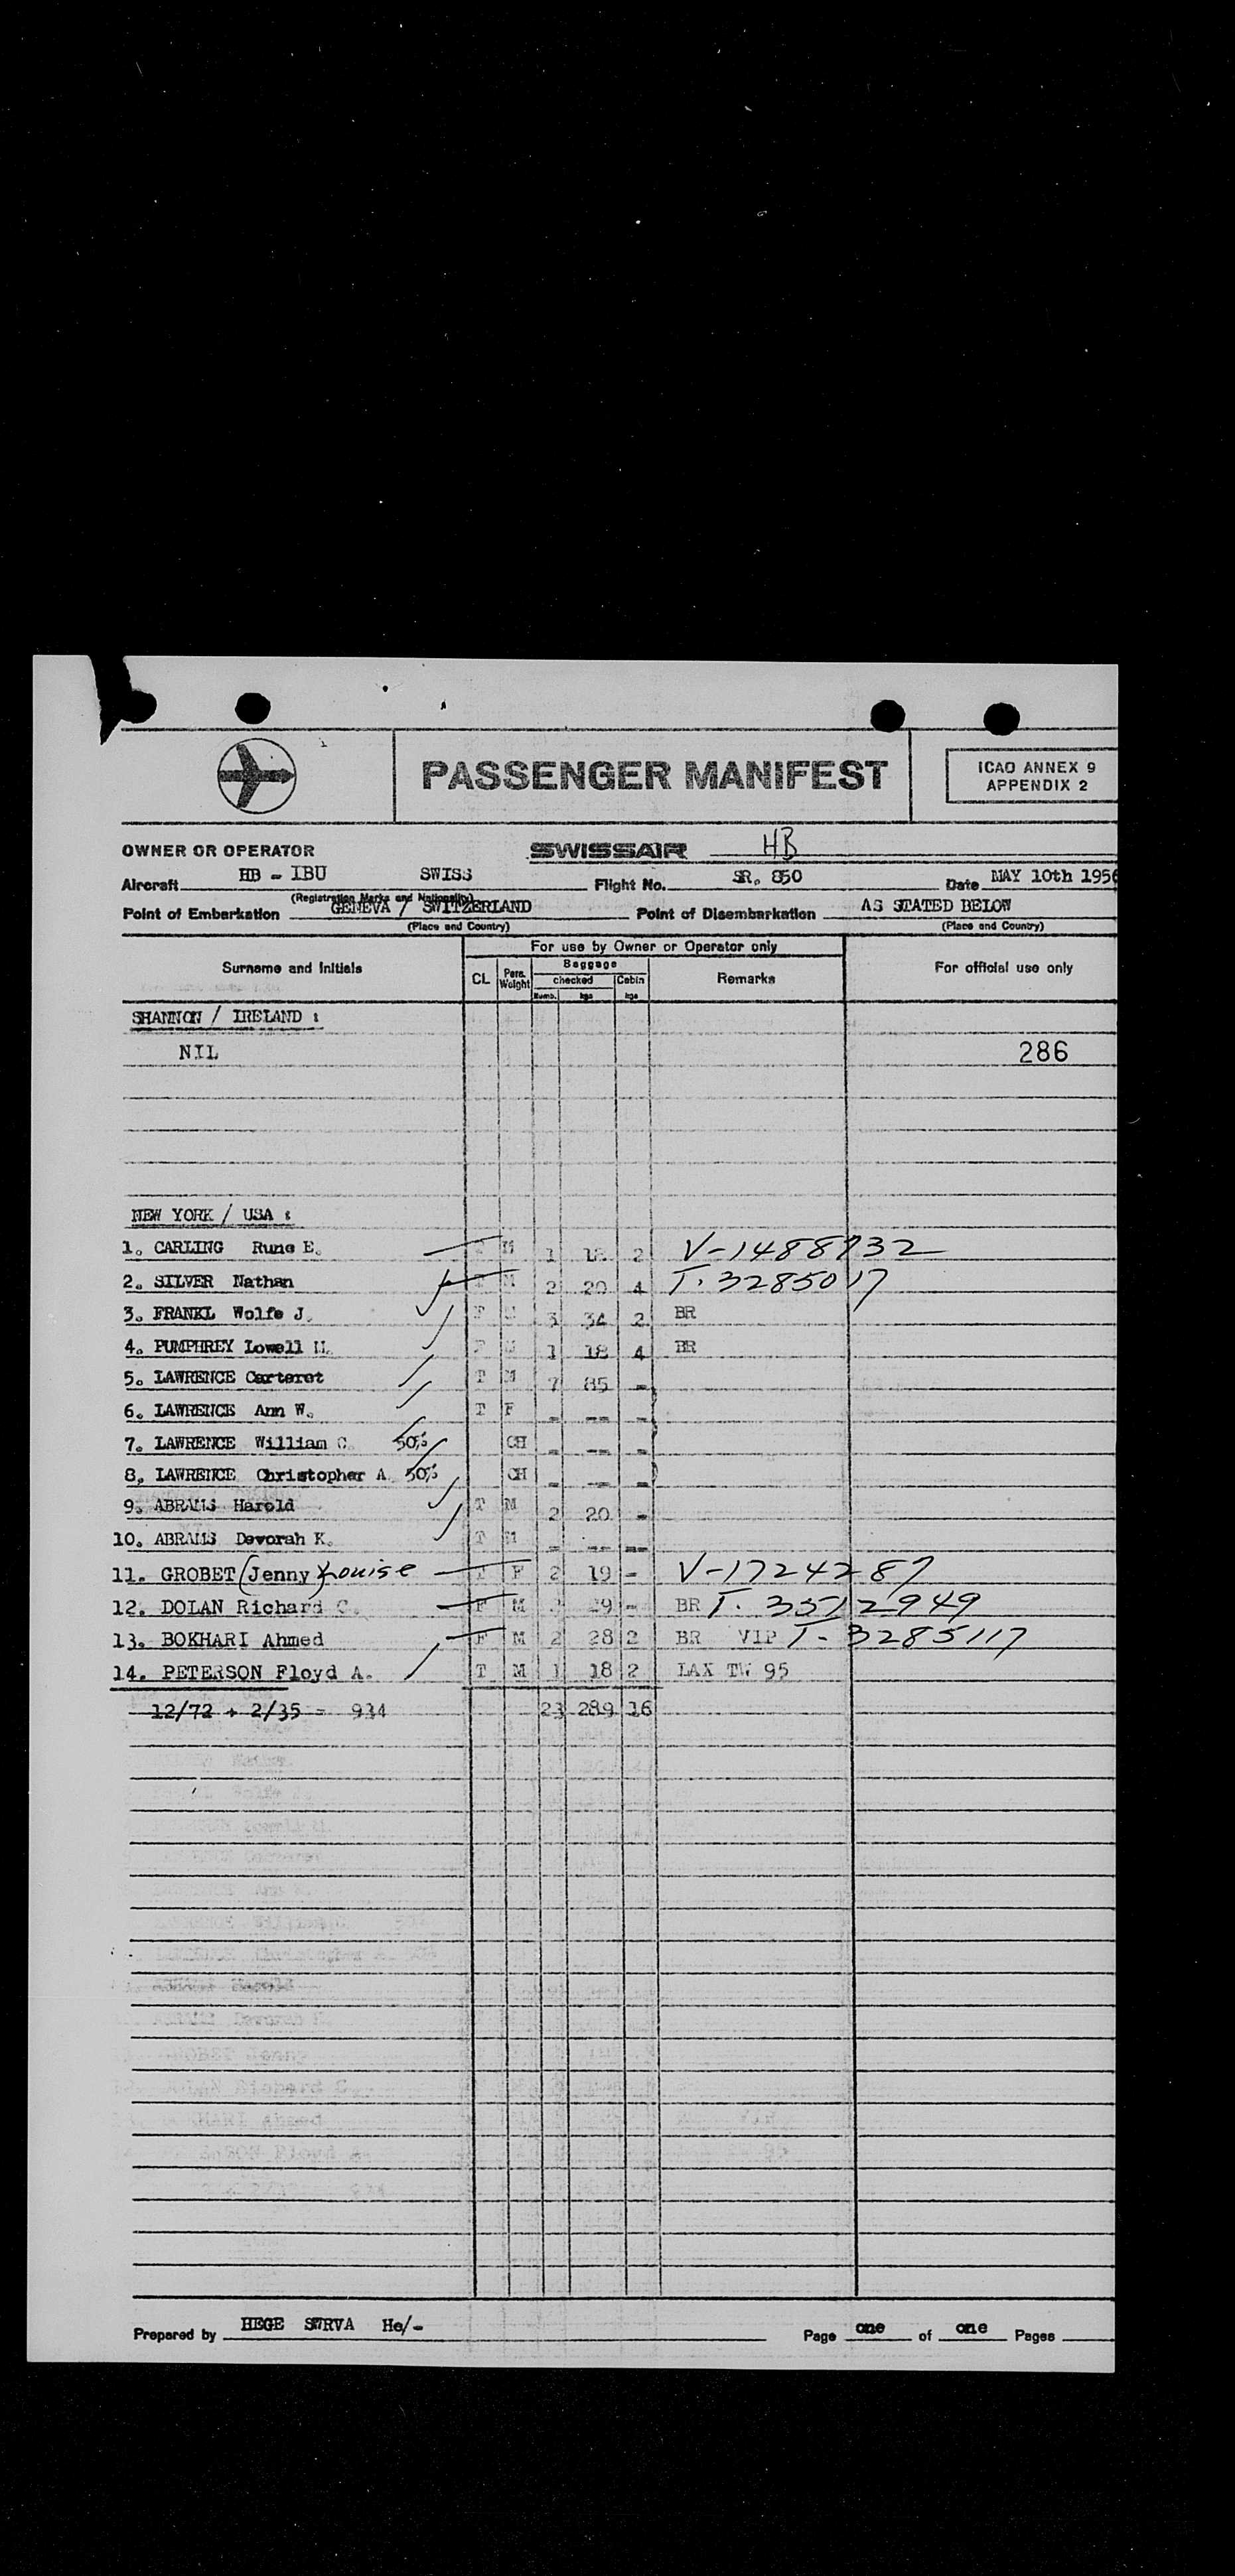 PASSENGER MANIFEST
ICAO ANNEX 9
APPENDIX 2
OWNER OR OPERATOR SWISSAIR HB
Aircraft HB - IBU SWISS Flight No. SR. 850 Date MAY 10th 1956
(Registration Marks and Nationality)
Point of Embarkation GENEVA / SWITZERLAND Point of Disembarkation AS STATED BELOW
(Place and Country) (Place and Country)
For use by Owner or Operator only
Surname and Initials CL Pers. Weight Baggage checked Numb. kgs Cabin kgs Remarks For official use only
SHANNON / IRELAND :
NIL 286
NEW YORK / USA :
1. CARLING Rune E. M 1 18 2 V-1488932
2. SILVER Nathan M 2 20 4 T. 3285017
3. FRANKL Wolfe J. F M 3 34 2 BR
4. PUMPHREY Lowell F M 1 18 4 BR
5. LAWRENCE Carteret T M 7 85 -
6. LAWRENCE Ann W. T F - -- -
7. LAWRENCE William C. 50% CH - -- -
8. LAWRENCE Christopher A. 50% CH - -- -
9. ABRAMS Harold T M 2 20 -
10. ABRAMS Devorah K. T M - -- --
11. GROBET (Jenny) Louise T F 2 19 - V-1724287
12. DOLAN Richard C. F M 29 - BR T. 33512949
13. BOKHARI Ahmed F M 2 28 2 BR VIP T- 3285117
14. PETERSON Floyd A. T M 1 18 2 LAX TW 95
12/72 + 2/35 = 934 23 289 16
Prepared by HEGE SWRVA He/- Page one of one Pages